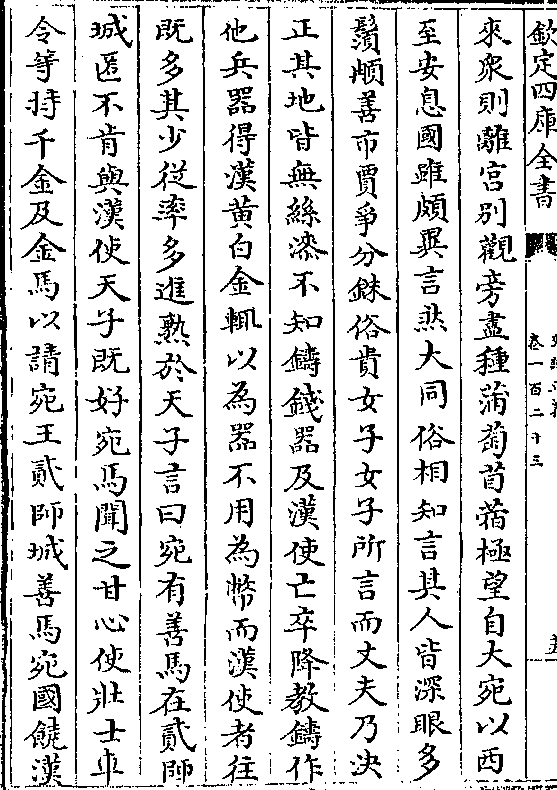 欽定四庫全書
卷一百二十三
來衆則離宫别觀旁盡種蒲萄苜蓿極望自大宛以西
至安息國雖頗異言然大同俗相知言其人皆深眼多
鬚䫇善市賈爭分銖俗貴女子女子所言而丈夫乃決
正其地皆無絲漆不知鑄錢器及漢使亡卒降教鑄作
他兵器得漢黄白金輒以為器不用為幣而漢使者往
既多其少從率多進熟於天子言曰宛有善馬在貳師
城匿不肯與漢使天子既好宛馬聞之甘心使壯士車
令等持千金及金馬以請宛王貳師城善馬宛國饒漢